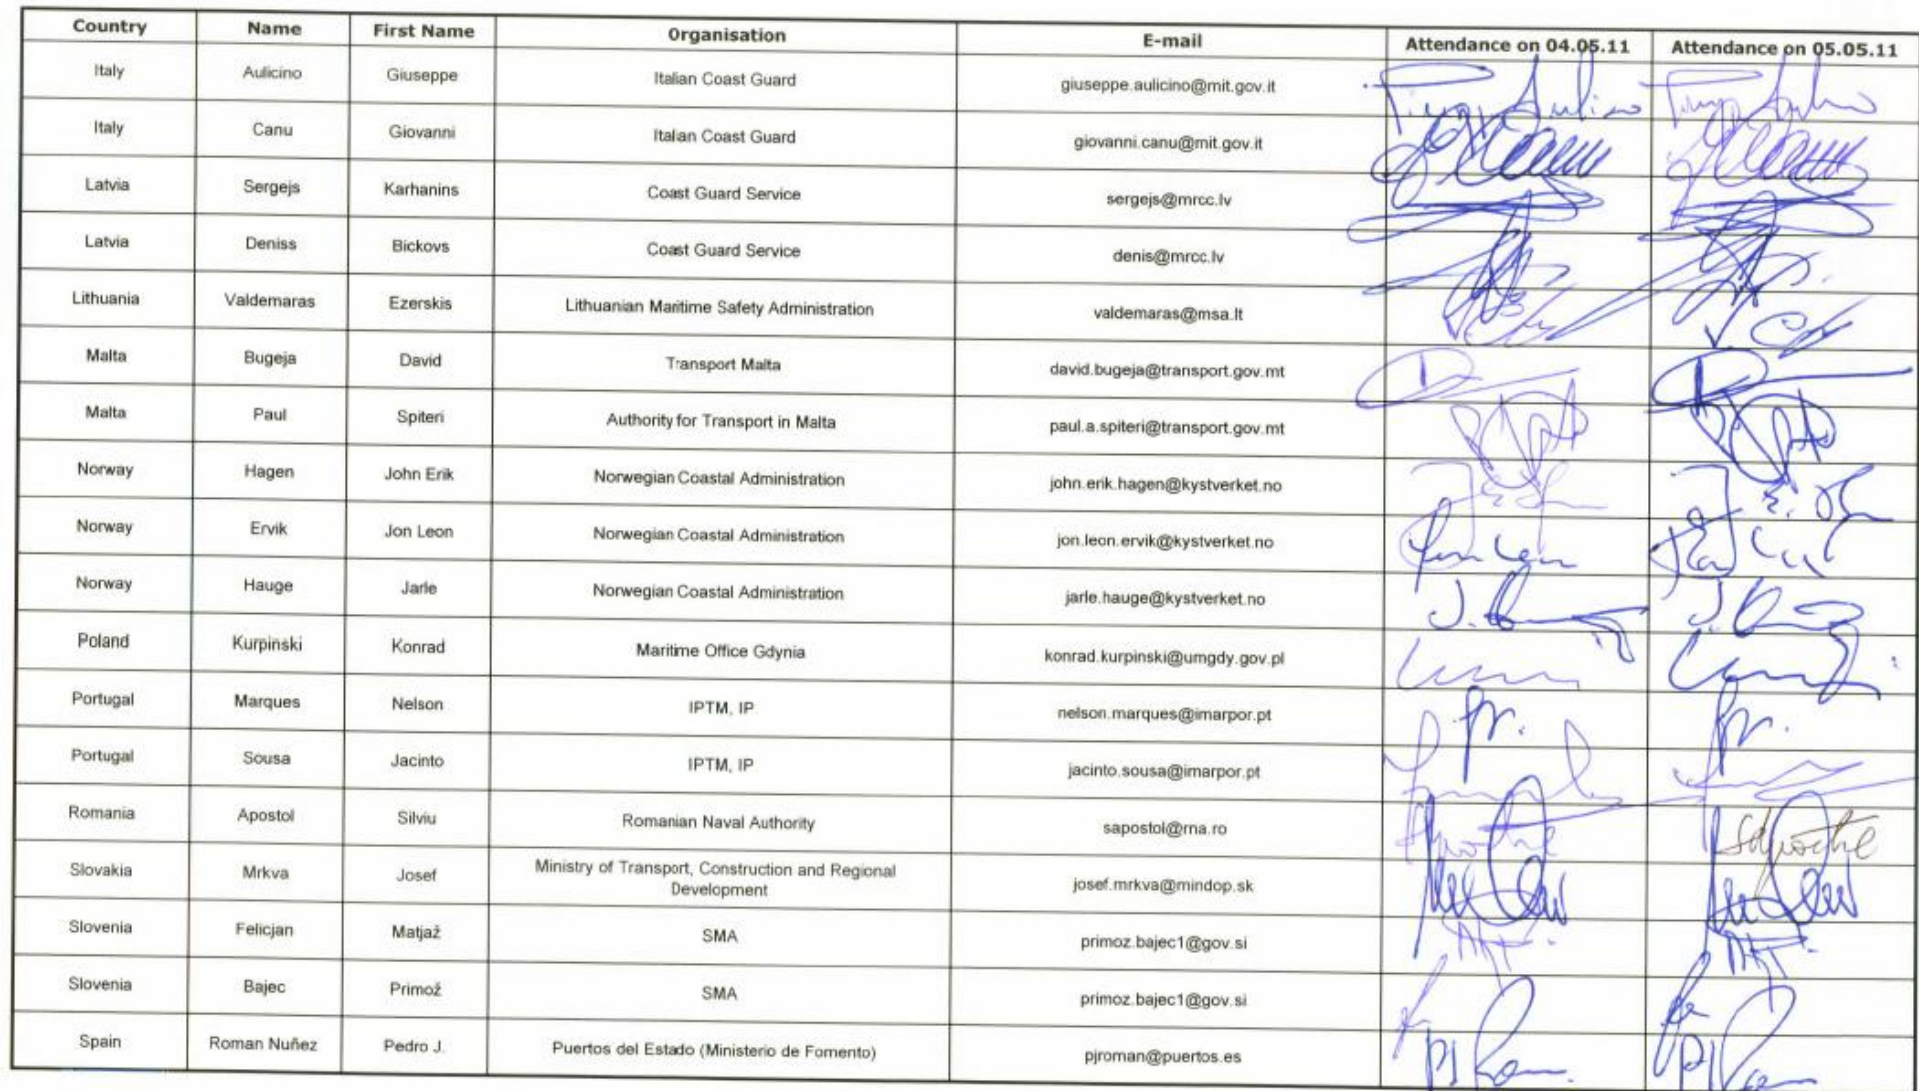 Country Name First Name Organisation E-mail Attendance on 04.05.11 Attendance on 05.05.11
Italy Aulicino Giuseppe Italian Coast Guard giuseppe.aulicino@mit.gov.it
Italy Canu Giovanni Italian Coast Guard giovanni.canu@mit.gov.it
Latvia Sergejs Karhanins Coast Guard Service sergejs@mrcc.lv
Latvia Deniss Bickovs Coast Guard Service denis@mrcc.lv
Lithuania Valdemaras Ezerskis Lithuanian Maritime Safety Administration valdemaras@msa.lt
Malta Bugeja David Transport Malta david.bugeja@transport.gov.mt
Malta Paul Spiteri Authority for Transport in Malta paul.a.spiteri@transport.gov.mt
Norway Hagen John Erik Norwegian Coastal Administration john.erik.hagen@kystverket.no
Norway Ervik Jon Leon Norwegian Coastal Administration jon.leon.ervik@kystverket.no
Norway Hauge Jarle Norwegian Coastal Administration jarle.hauge@kystverket.no
Poland Kurpinski Konrad Maritime Office Gdynia konrad.kurpinski@umgdy.gov.pl
Portugal Marques Nelson IPTM, IP nelson.marques@imarpor.pt
Portugal Sousa Jacinto IPTM, IP jacinto.sousa@imarpor.pt
Romania Apostol Silviu Romanian Naval Authority sapostol@rna.ro
Slovakia Mrkva Josef Ministry of Transport, Construction and Regional
Development josef.mrkva@mindop.sk
Slovenia Felicjan Matjaž SMA primoz.bajec1@gov.si
Slovenia Bajec Primož SMA primoz.bajec1@gov.si
Spain Roman Nuñez Pedro J. Puertos del Estado (Ministerio de Fomento) pjroman@puertos.es